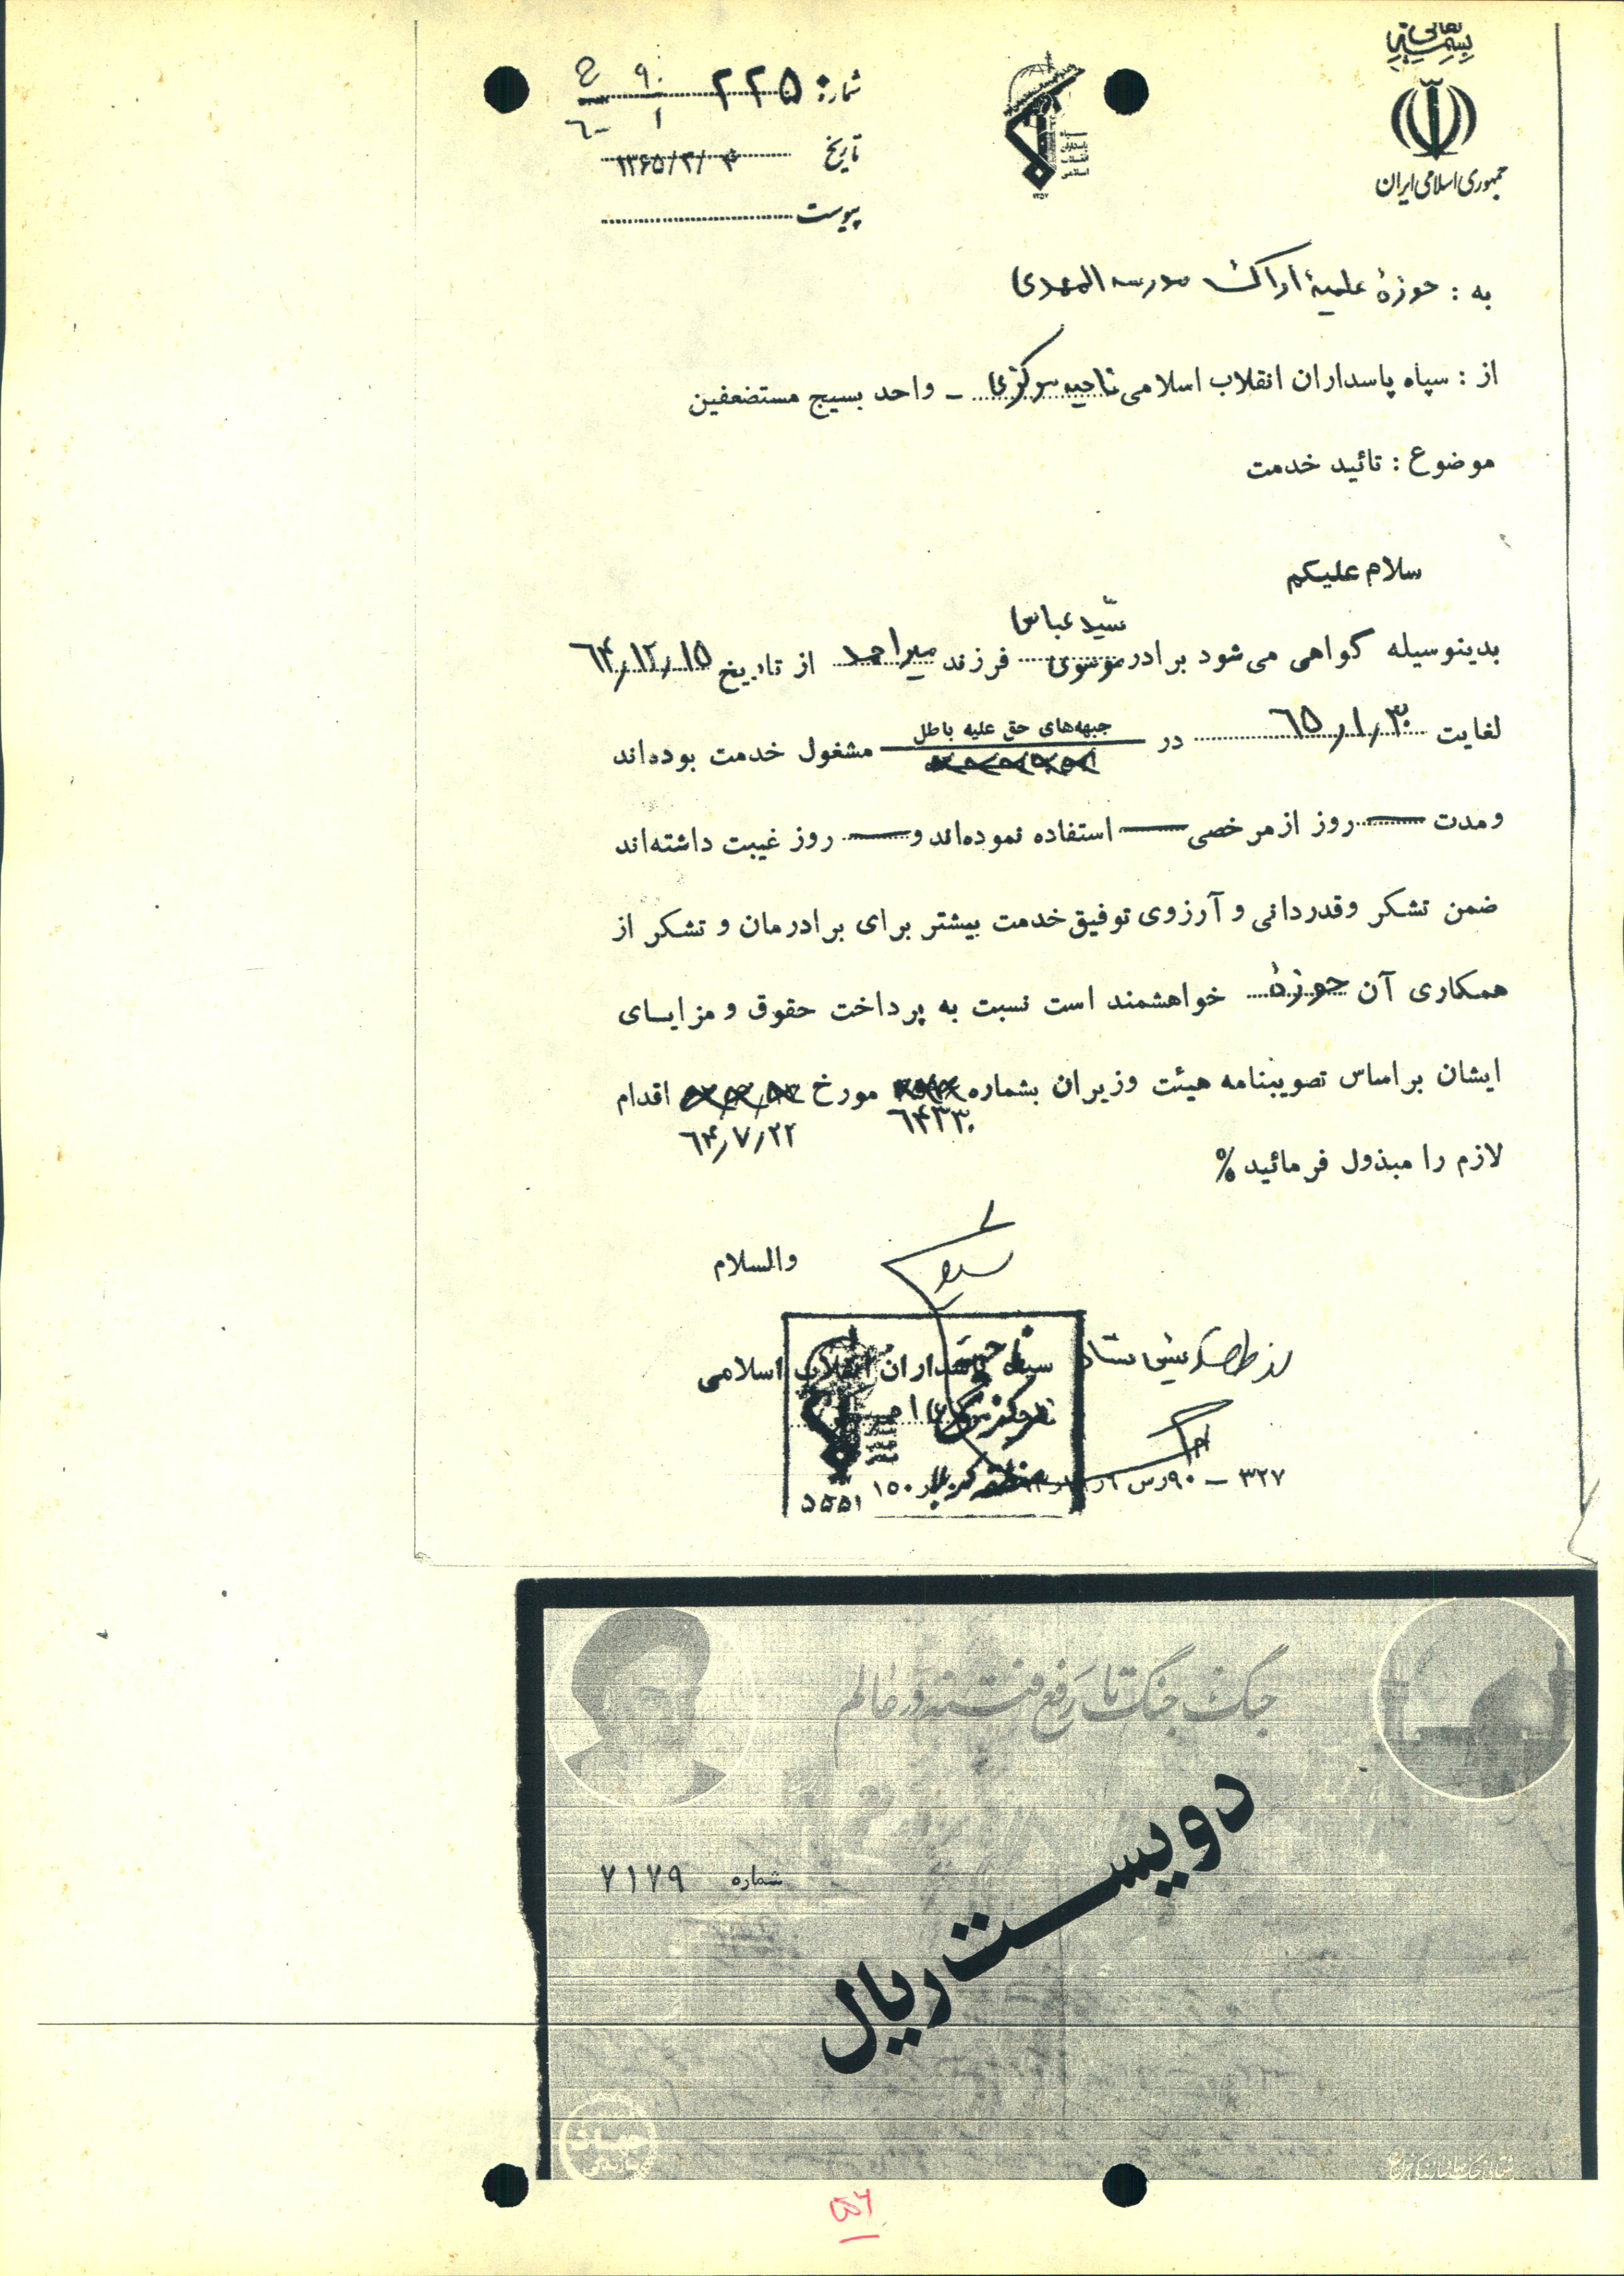 بسمه تعالی
جمهوری اسلامی ایران
شماره: ۲۲۵
تاریخ ۱۳۶۵/۲/۴
پیوست
به : حوزهٔ علمیهٔ اراک مدرسه المهدی
از : سپاه پاسداران انقلاب اسلامی ناحیه مرکزی - واحد بسیج مستضعفین
موضوع : تائید خدمت
سلام علیکم
سیّد عباس
بدینوسیله گواهی می‌شود برادر موسوی فرزند میراحمد از تاریخ ٦۴٫۱۲٫۱۵
لغایت ٦۵٫۱٫۳۰ در جبهه‌های حق علیه باطل مشغول خدمت بوده‌اند
و مدت — روز از مرخصی — استفاده نموده‌اند و — روز غیبت داشته‌اند
ضمن تشکر و قدردانی و آرزوی توفیق خدمت بیشتر برای برادرمان و تشکر از
همکاری آن حوزهٔ خواهشمند است نسبت به پرداخت حقوق و مزایای
ایشان براساس تصویبنامه هیئت وزیران بشماره مورخ اقدام
٦۴۳۳۰ ٦۴٫۷٫۲۲
لازم را مبذول فرمائید %
والسلام
سپاه پاسداران انقلاب اسلامی
ناحیه
مرکزی
۵۵۵۱
۳۲۷ – ۹۰
جنگ جنگ تا رفع فتنه در عالم
دویست ریال
شماره ۷۱۷۹